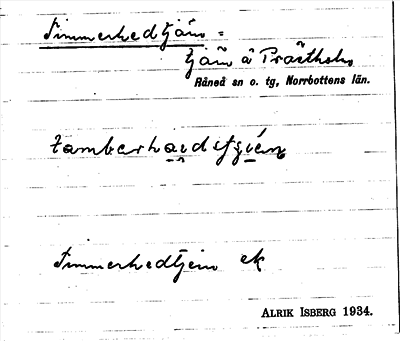 Timmerhedtjärn =
tjärn å Prästholm
Råneå sn o. tg, Norrbottens län.
Timmerhedtjern ek
ALRIK ISBERG 1934.